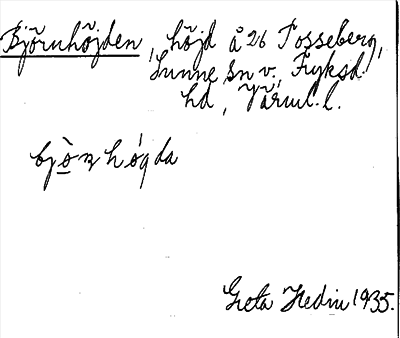 Björnhöjden, höjd å 26 Tosseberg,
Sunne sn v., Fryksd.
hd, Värml. l.
bjò̤n hó̤gda
Greta Hedin 1935.